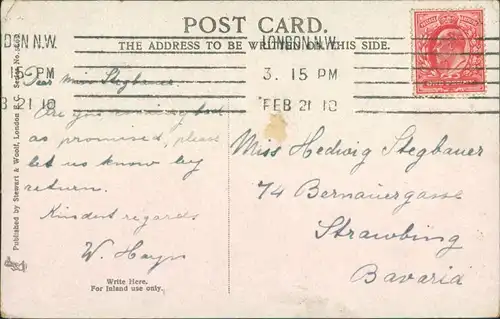 POST CARD.
THE ADDRESS TO BE WRITTEN ON THIS SIDE.
LONDON. N.W.
3. 15 PM
FEB 21 10
DON N.W.
15 PM
B 21 10
Dear Miss Stegbauer.
Are you coming back
as promised, please
let us know by
return.
Kindest regards
W. Hays
Write Here.
For Inland use only.
Miss Hedwig Stegbauer
74 Bernauergasse
Strawbing
Bavaria
Published by Stewart & Woolf, London E.C. Series No.